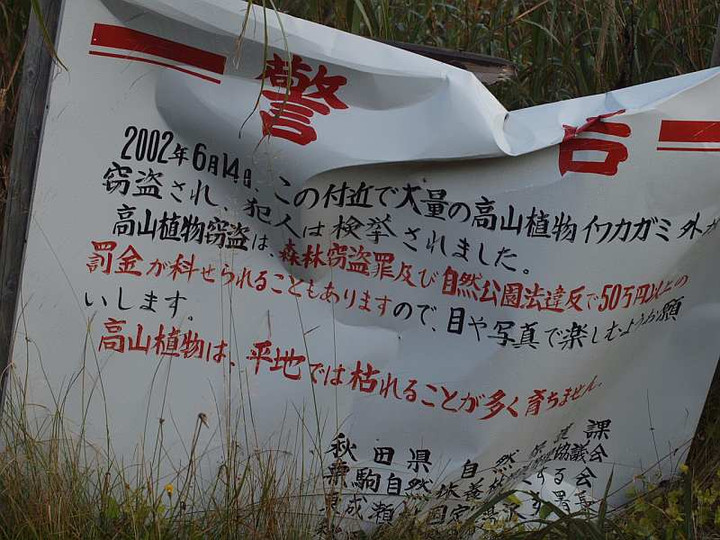 警告
2002年6月14日、この付近で大量の高山植物イワカガミ外が
窃盗され、犯人は検挙されました。
高山植物窃盗は、森林窃盗罪及び自然公園法違反で50万円以上の
罰金が科せられることもありますので、目や写真で楽しむようお願
いします。
高山植物は、平地では枯れることが多く育ちません。
秋田県自然保護課
栗駒自然休養林協議会
東成瀬